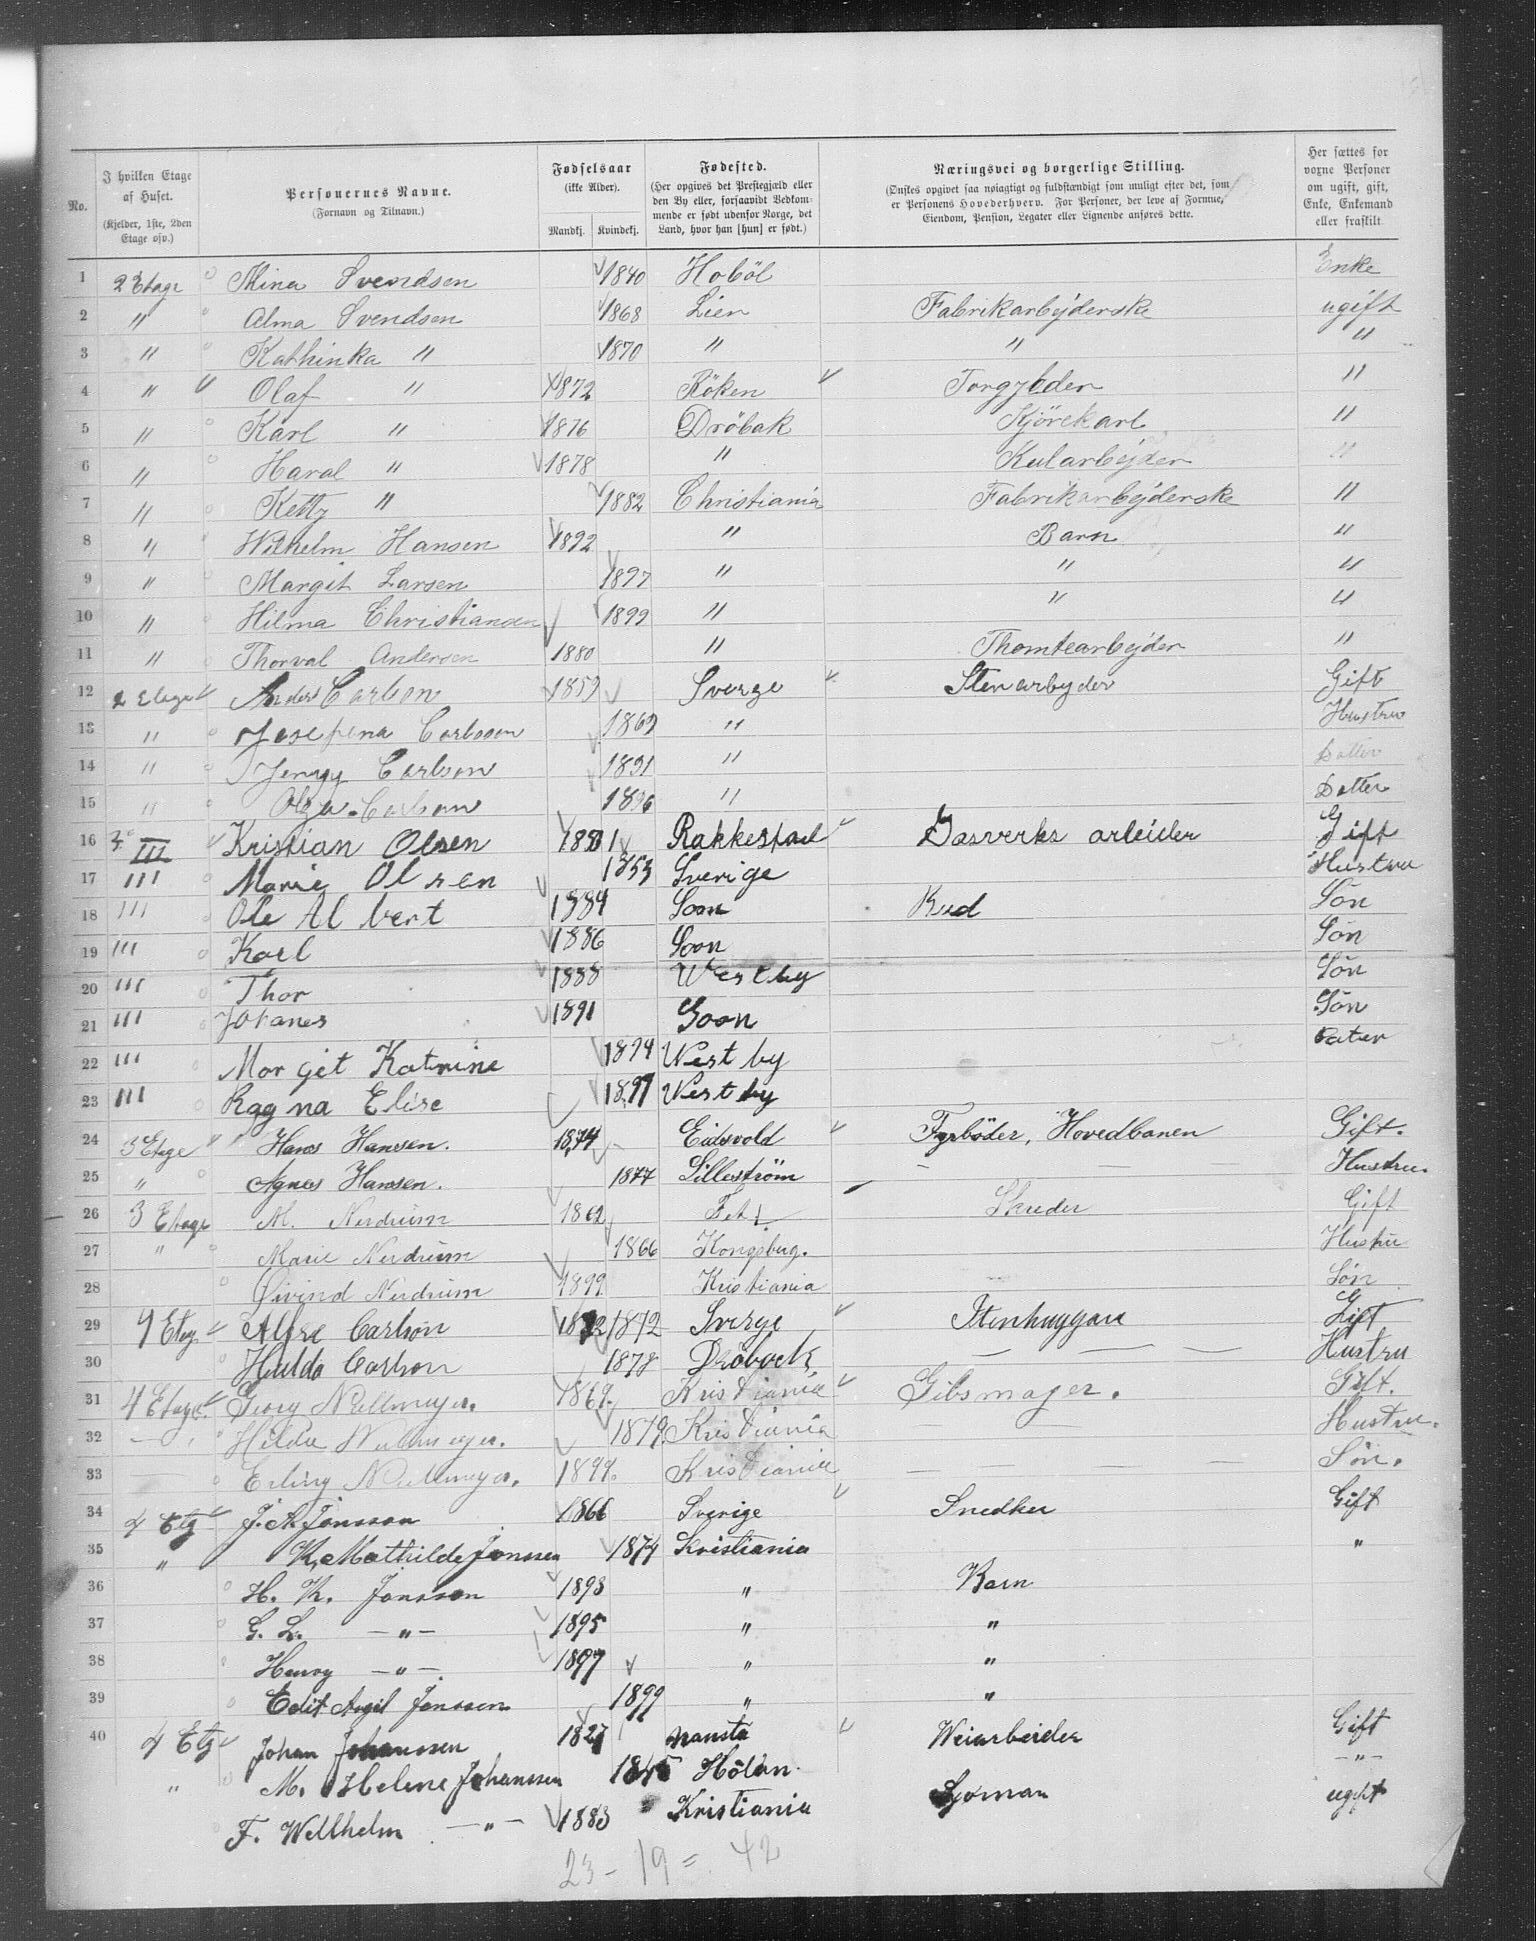 No. | I hvilken Etage af Huset. (Kjelder, 1ste, 2den Etage osv.) | Personernes Navne. (Fornavn og Tilnavn.) | Fødselsaar (ikke Alder). Mandkj. Kvindekj. | Fødested. (Her opgives det Prestegjæld eller den By eller, forsaavidt Vedkommende er født udenfor Norge, det Land, hvor han [hun] er født.) | Næringsvei og borgerlige Stilling. (Ønskes opgivet saa nøiagtigt og fuldstændigt som muligt efter det, som er Personens Hovederhverv. For Personer, der leve af Formue, Eiendom, Pension, Legater eller Lignende anføres dette. | Her sættes for voxne Personer om ugift, gift, Enke, Enkemand eller fraskilt
1 2 Etage Mina Svendsen 1840 Hoböl Enke
2 " Alma Svendsen 1868 Lier Fabrikarbejderske ugift
3 " Kathinka " 1870 " " "
4 " Olaf " 1872 Röken Torgybder "
5 " Karl " 1876 Dröbak Kjörekarl "
6 " Haral " 1878 " Kularbejder "
7 " Ketty " 1882 Christiania Fabrikarbejderske "
8 " Wilhelm Hansen 1892 " Barn "
9 " Margit Larsen 1897 " " "
10 " Hilma Christiansen 1899 " " "
11 " Thorval Andersen 1880 " Thomtearbejder "
12 2 Etage Anders Carlson 1859 Sverge Stenarbyder Gift
13 " Josepena Carlsson 1869 " Hustru
14 " Jenny Carlson 1891 " Datter
15 " Olga Carlson 1896 " Datter
16 III Kristian Olsen 1880 1 Rakkestad Gasverks arbeider Gift
17 III Marie Olsen 1853 Sverige Hustru
18 III Ole Albert 1884 Soon Bud Sön
19 III Karl 1886 Soon Sön
20 III Thor 1888 Westby Sön
21 III Johanes 1891 Soon Sön
22 III Morgit Katrine 1894 Westby Dater
23 III Ragna Elise 1897 Westby
24 3 Etage Hans Hansen. 1874 Eidsvold Fyrböder, Hovedbanen Gift.
25 " Agnes Hansen. 1877 Lilleström — — — Hustru.
26 3 Etage M. Nerdrum 1862 Fet Skreder Gift
27 " Marie Nerdrum 1866 Kongsberg. Hustru
28 Øivind Nerdrum 1899 Kristiania Søn
29 4 Etag. Alfre Carlson 1872 1872 Sverge Stenhuggare Gift
30 Hulda Carlson 1878 Dröback — — — Hustru
31 4 Etage Georg 1869. Kristiania Gibsmager. Gift.
32 — " Hilda 1879. Kristiania Hustru.
33 — Erling 1899. Kristiania — — — Søn.
34 4 Etg J. A Jonsson 1866 Sverige Snedker Gift
35 " K. Mathilde Jonssen 1874 Kristiania "
36 H. K. Jonsson 1893 " Barn
37 G. L. —"— 1895 " "
38 Henry —"— 1897 " "
39 Edit Jonssen 1899 " "
40 4 Etg Johan Johanssen 1827 Weiarbeider Gift
" M. Helene Johanssen 1845 Hölan —"—
F. Wellhelm —"— 1883 Kristiania Sjoman ugift
23 – 19 = 42